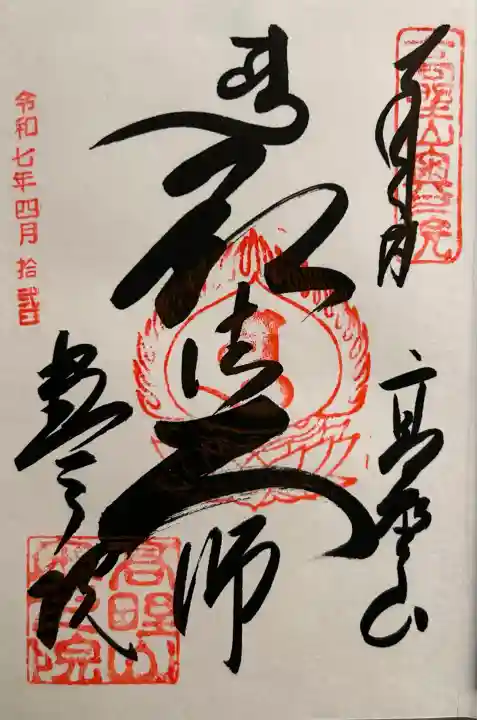 高野山奥之院
高野山
弘法大師
奥之院
令和七年四月拾弐日